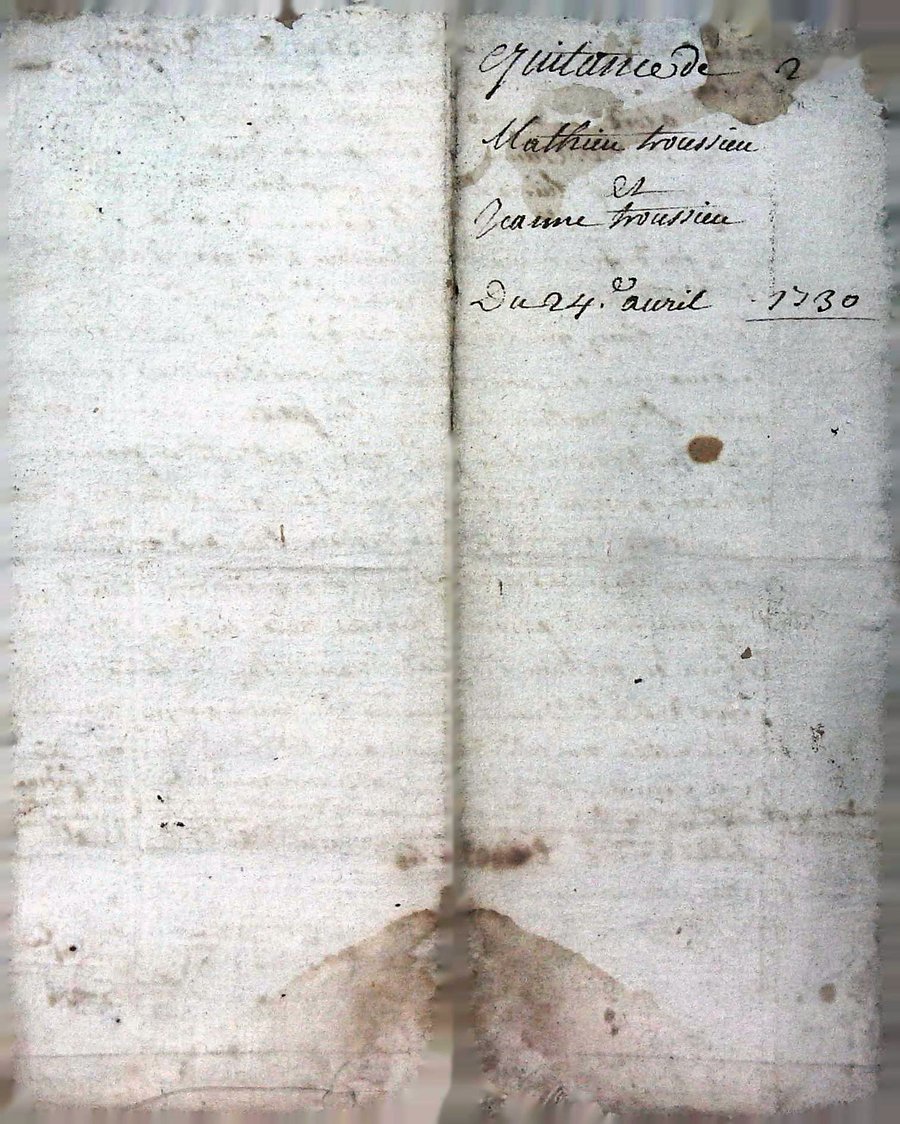 Quitance de 2
Mathieu troussieu
et
Jeanne troussieu
Du 24.e auril 1730